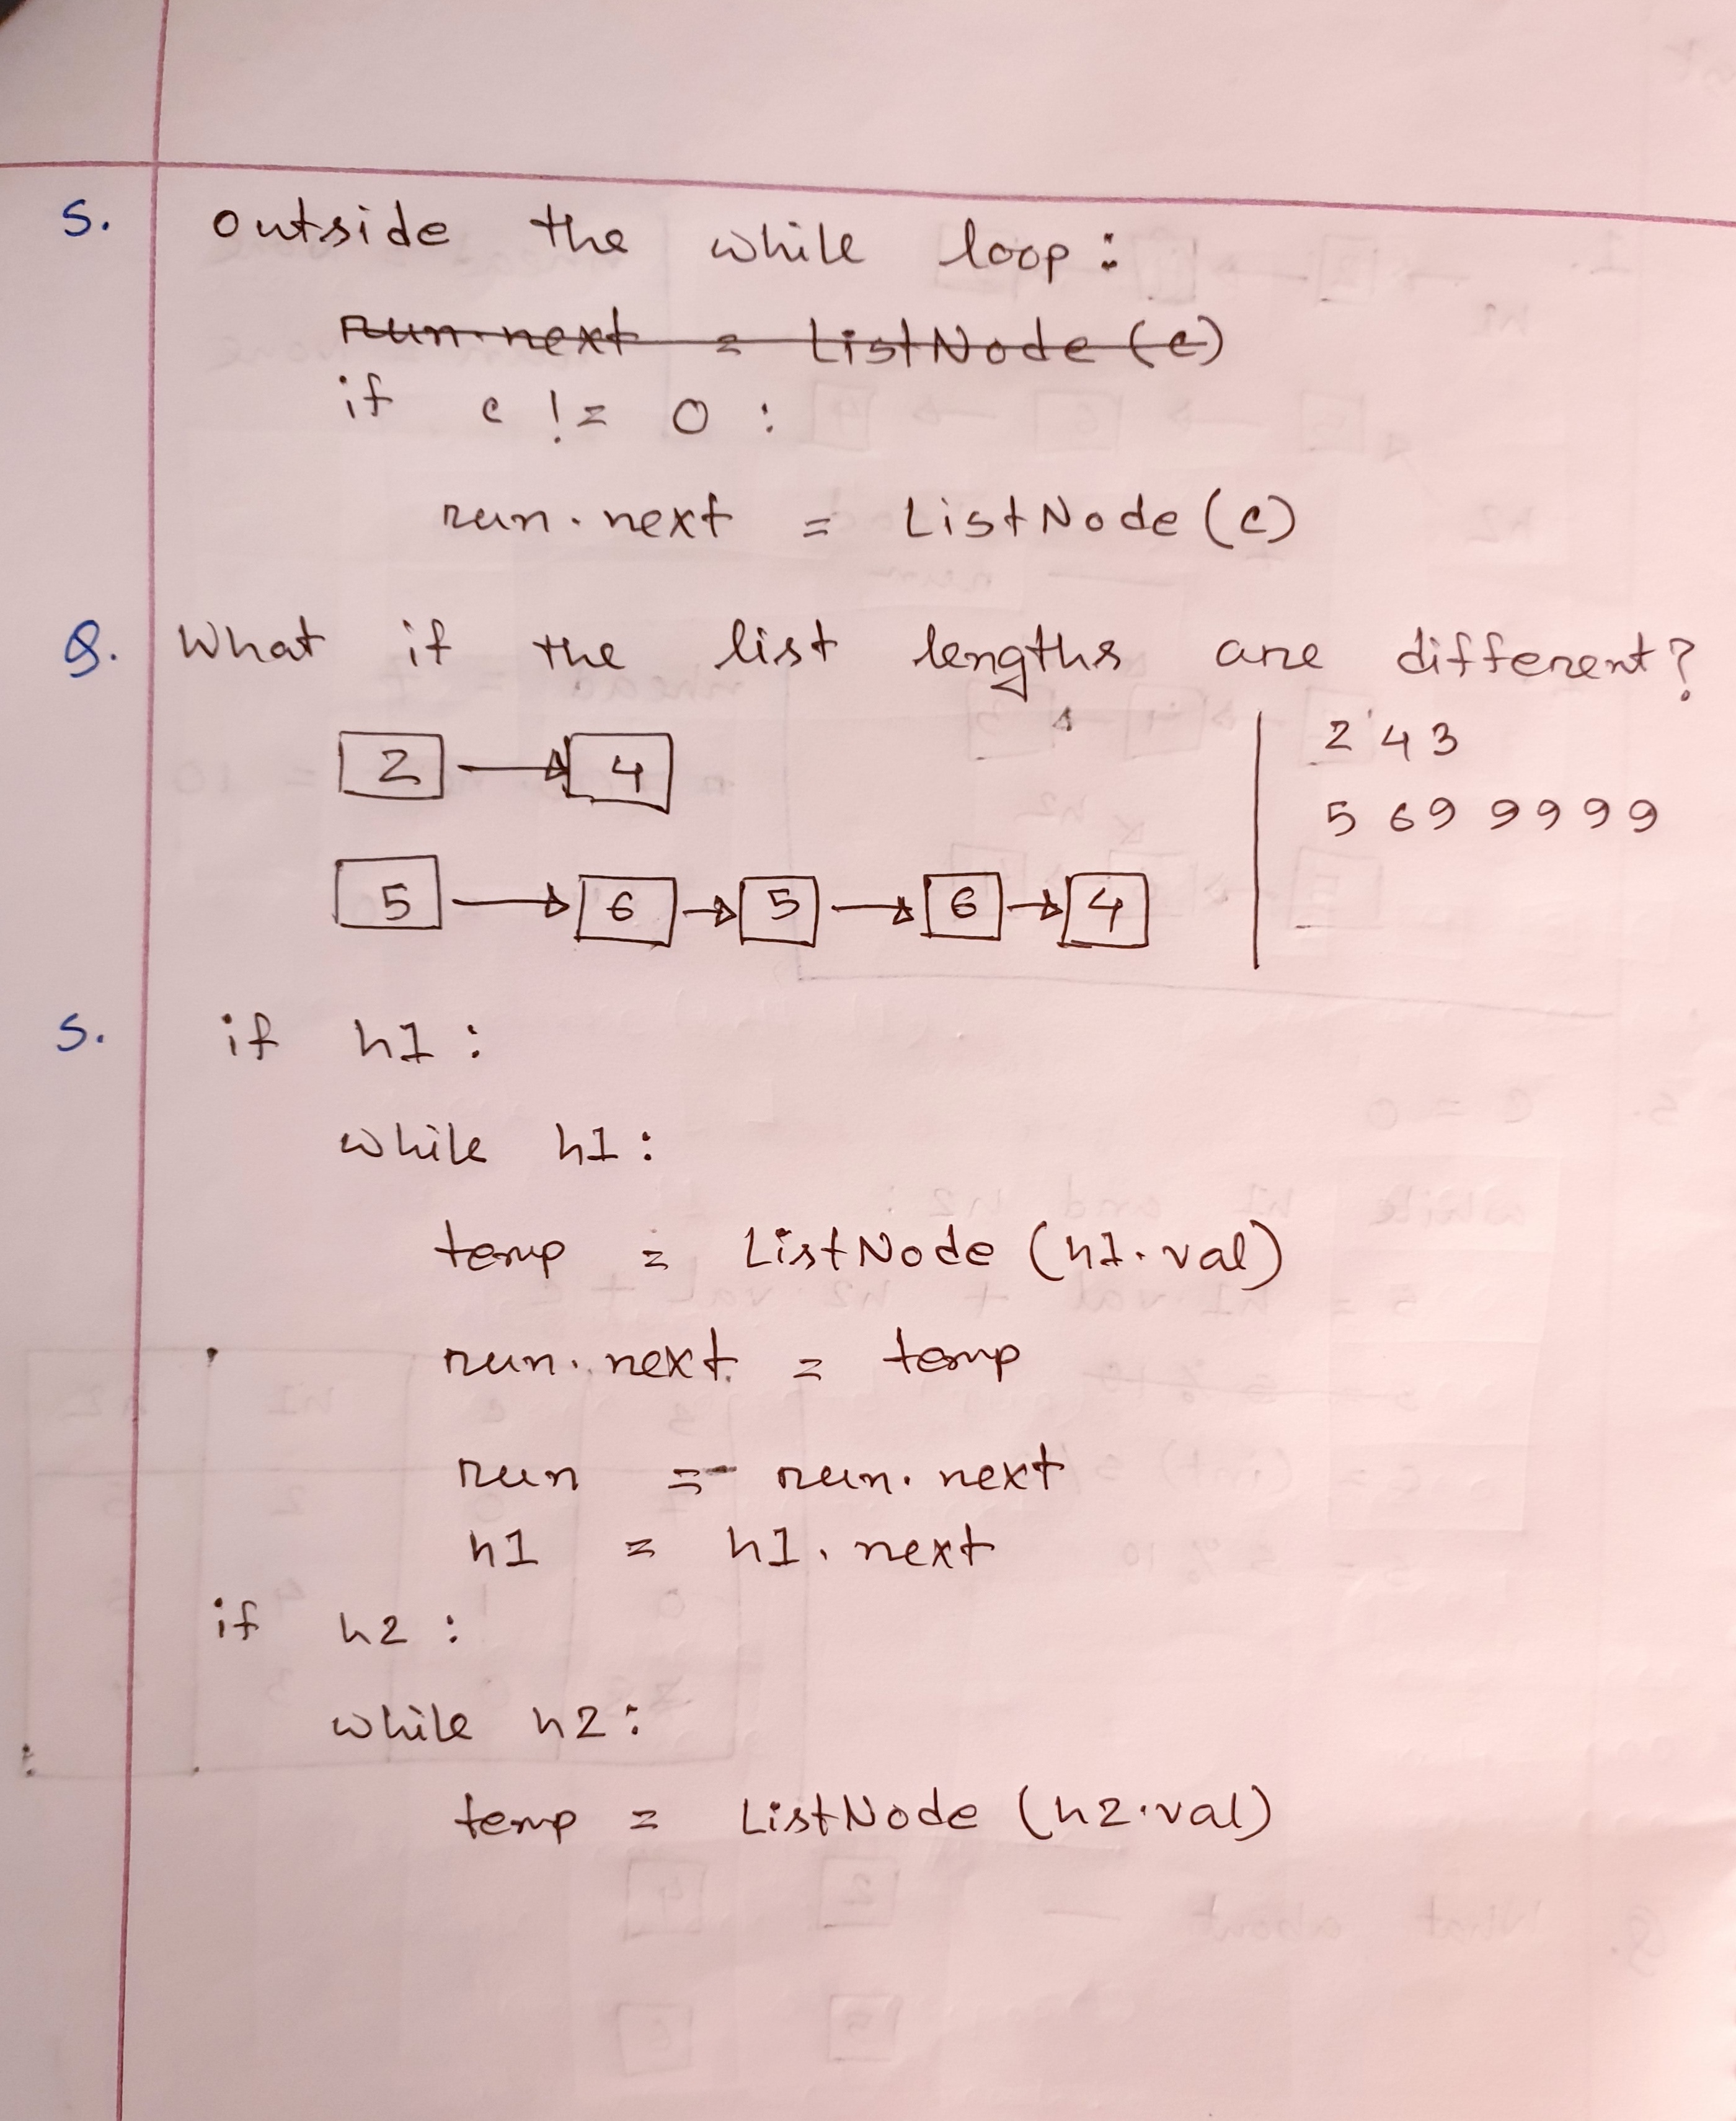 S. Outside the while loop :
run.next = ListNode(c)
if c != 0 :
run.next = ListNode(c)
Q. What if the list lengths are different?
2 4
2 4 3
5 6 9 9 9 9 9
5 6 5 6 4
S. if h1 :
while h1 :
temp = ListNode (h1.val)
run.next = temp
run = run.next
h1 = h1.next
if h2 :
while h2 :
temp = ListNode (h2.val)